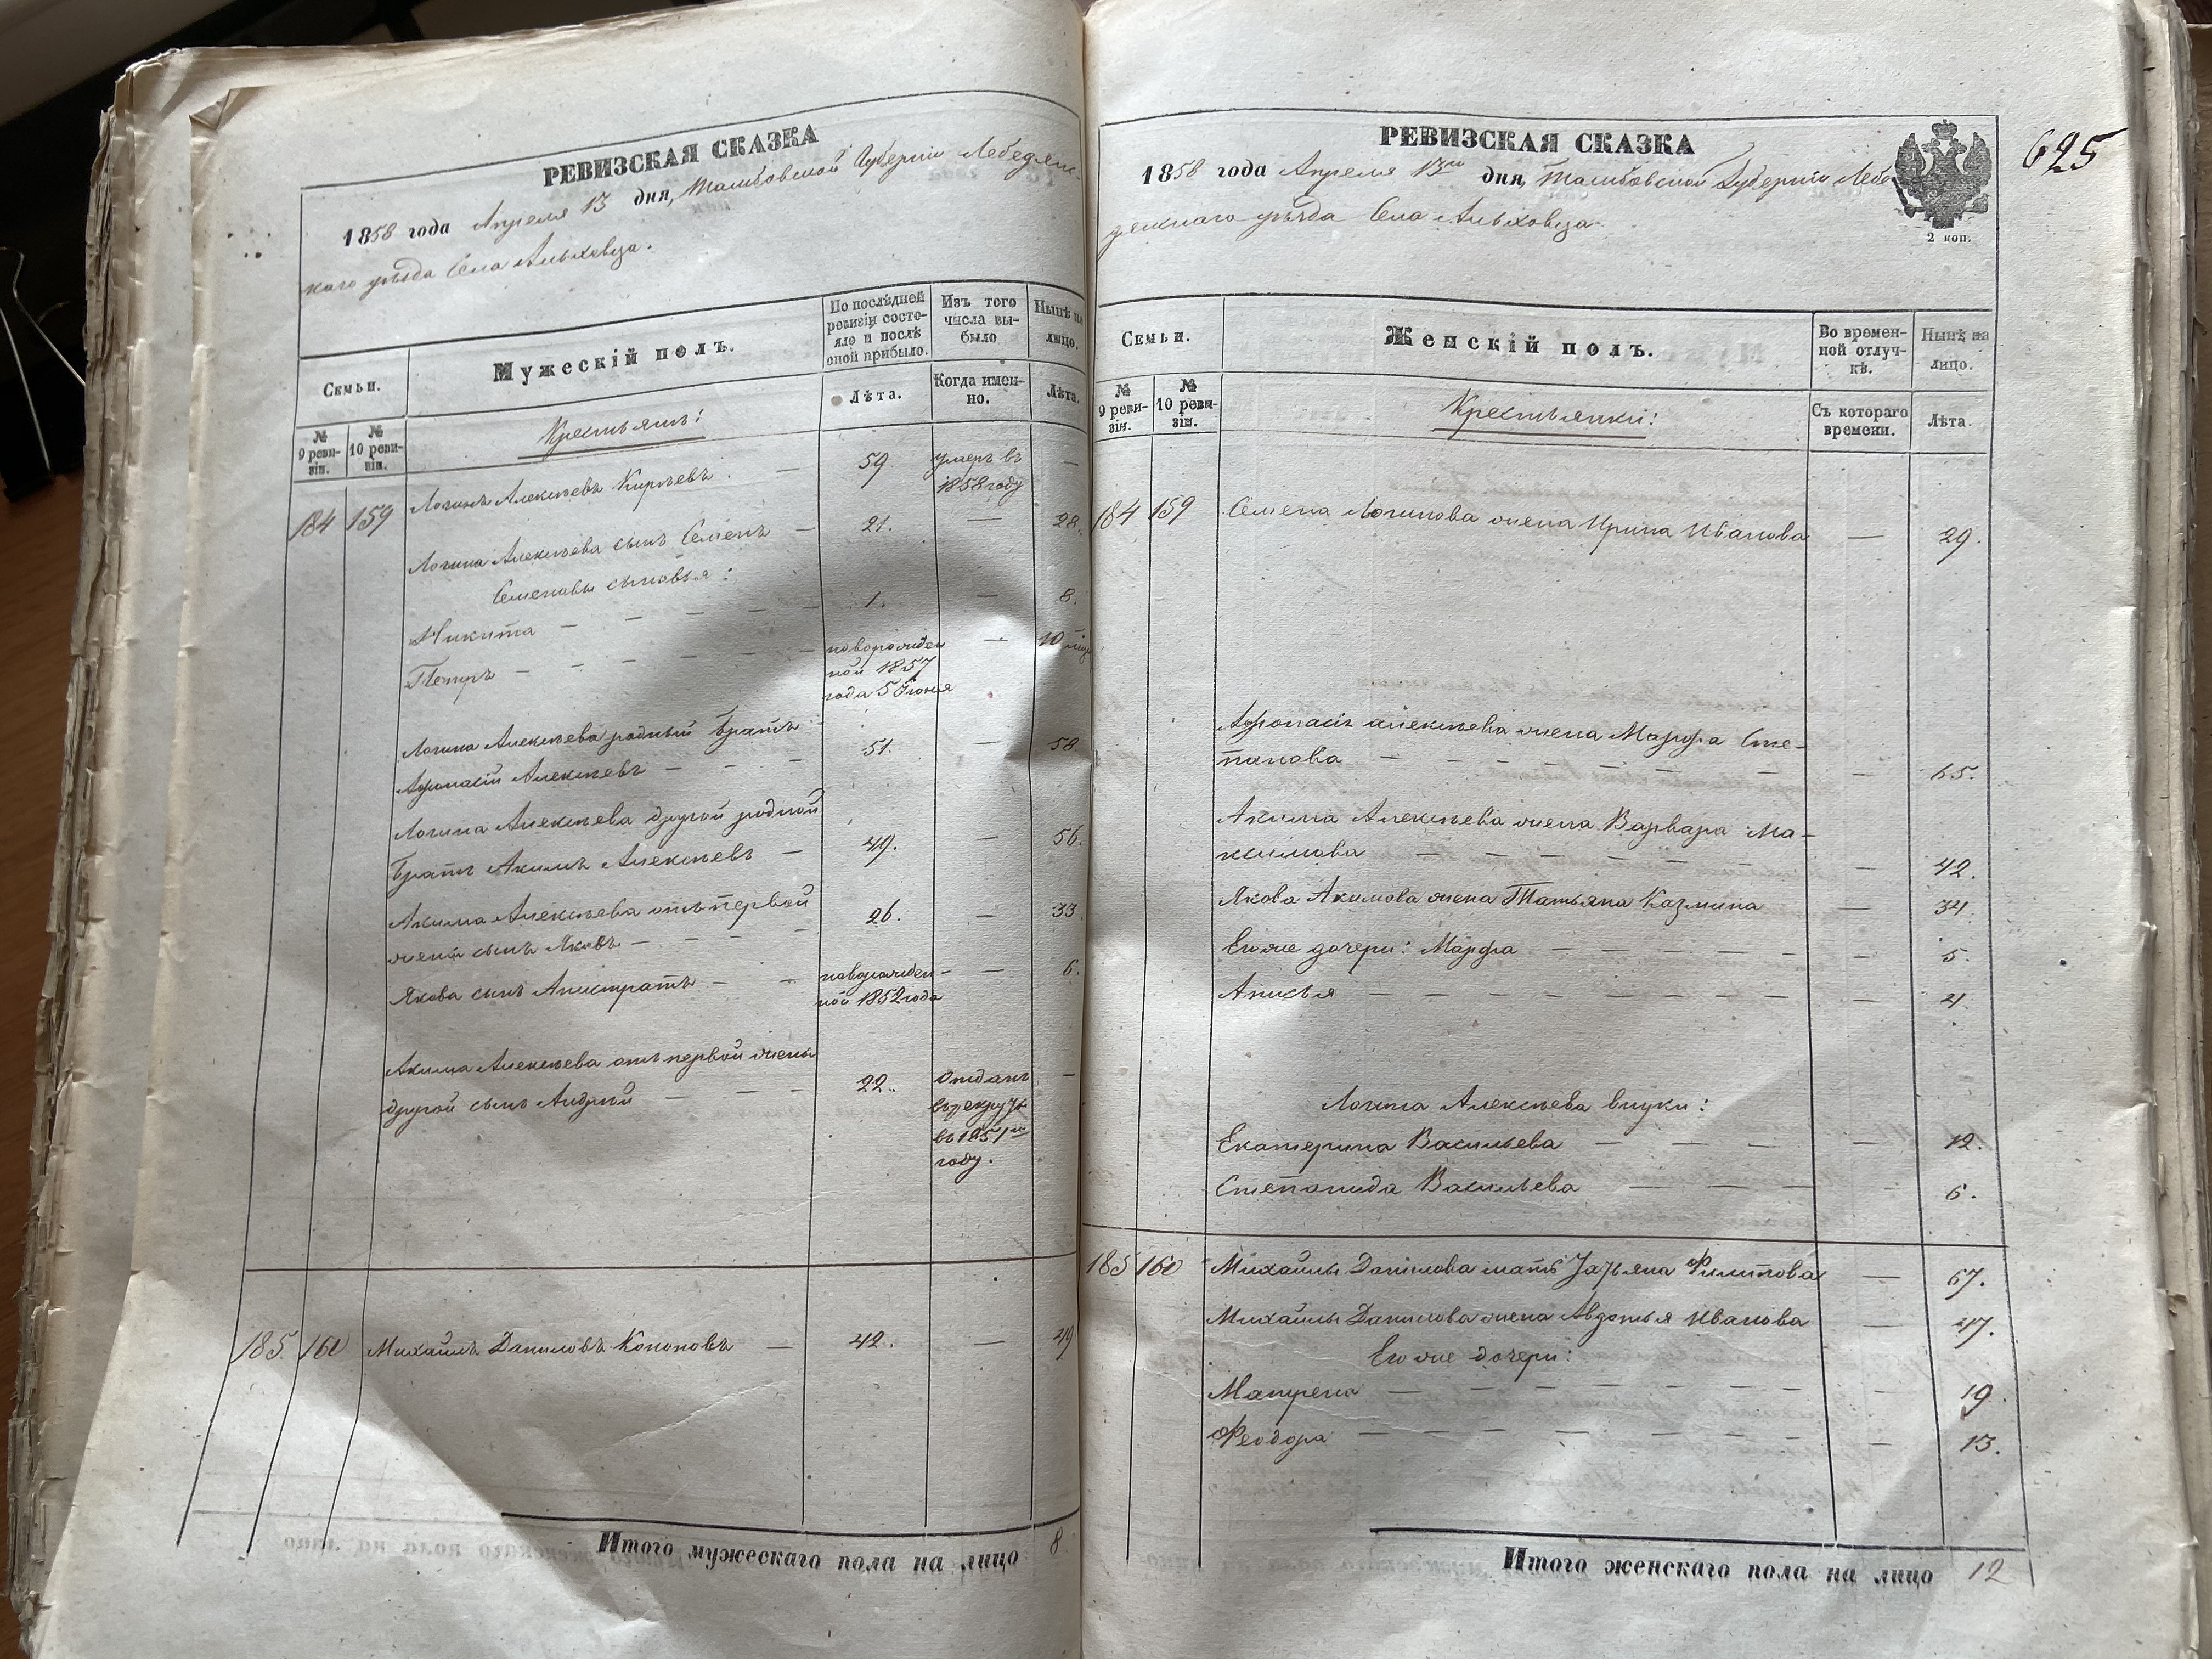 РЕВИЗСКАЯ СКАЗКА
1858 года Апреля 13 дня, Тамбовской Губерніи Лебедянс-
каго уѣзда Села
Семьи.
Мужескій полъ.
По послѣдней ревизіи состо-
яло и послѣ
оной прибыло.
Изъ того
числа вы-
было
Нынѣ на
лицо.
№
9 реви-
зіи.
№
10 реви-
зіи.
Крестьяне:
Лѣта.
Когда имен-
но.
Лѣта.
184 159 Логинъ Алексѣевъ Кирѣевъ. — 59. умеръ въ —
1858 году
Логина Алексѣева сынъ Семенъ — 21. — 28.
Семеновы сыновья:
Никита — — — — 1. — 8.
Петръ — — — — — новорожден
ной 1857
года 5 Іюня
— 10
Логина Алексѣева родный братъ
Афонасій Алексѣевъ — — — 51. — 58
Логина Алексѣева другой родной
братъ Акимъ Алексѣевъ — 49. — 56.
Акима Алексѣева отъ первой
жены сынъ Яковъ — — — 26. — 33
Якова сынъ Аникстратъ — — новорожден-
ной 1852 года
— 6.
Акима Алексѣева отъ первой жены
другой сынъ Андрей — — — 22. Отданъ —
въ рекруты
въ 1851мъ
году.
185. 160 Михайлъ Даниловъ Кононовъ — 42. — 49
Итого мужескаго пола на лицо 8.
625
РЕВИЗСКАЯ СКАЗКА
2 коп.
1858 года Апреля 13го дня, Тамбовской Губерніи Лебе
дянскаго уѣзда Села
Семьи.
Женскій полъ.
Во времен-
ной отлуч-
кѣ.
Нынѣ на
лицо.
№
9 реви-
зіи.
№
10 реви-
зіи.
Крестьянки:
Съ котораго
времени.
Лѣта.
184 159 Семена Логинова жена Ирина Иванова — 29.
Афонасія Алексѣева жена Марфа Сте-
панова — — — — — — — 65.
Акима Алексѣева жена Варвара Ма-
ксимова — — — — — — 42.
Якова Акимова жена Татьяна Казмина — 34.
Его же дочери: Марфа — — — — — 5.
Анисья — — — — — — — — 4.
Логина Алексѣева внуки:
Екатерина Васильева — — — — 12.
Степанида Васильева — — — 6.
185 160 Михайлы Данилова мать Филипова — 67.
Михайлы Данилова жена Авдотья Иванова — 47.
Его же дочери:
Матрена — — — — — — — — 19.
Феодора — — — — — — — — 13.
Итого женскаго пола на лицо 12